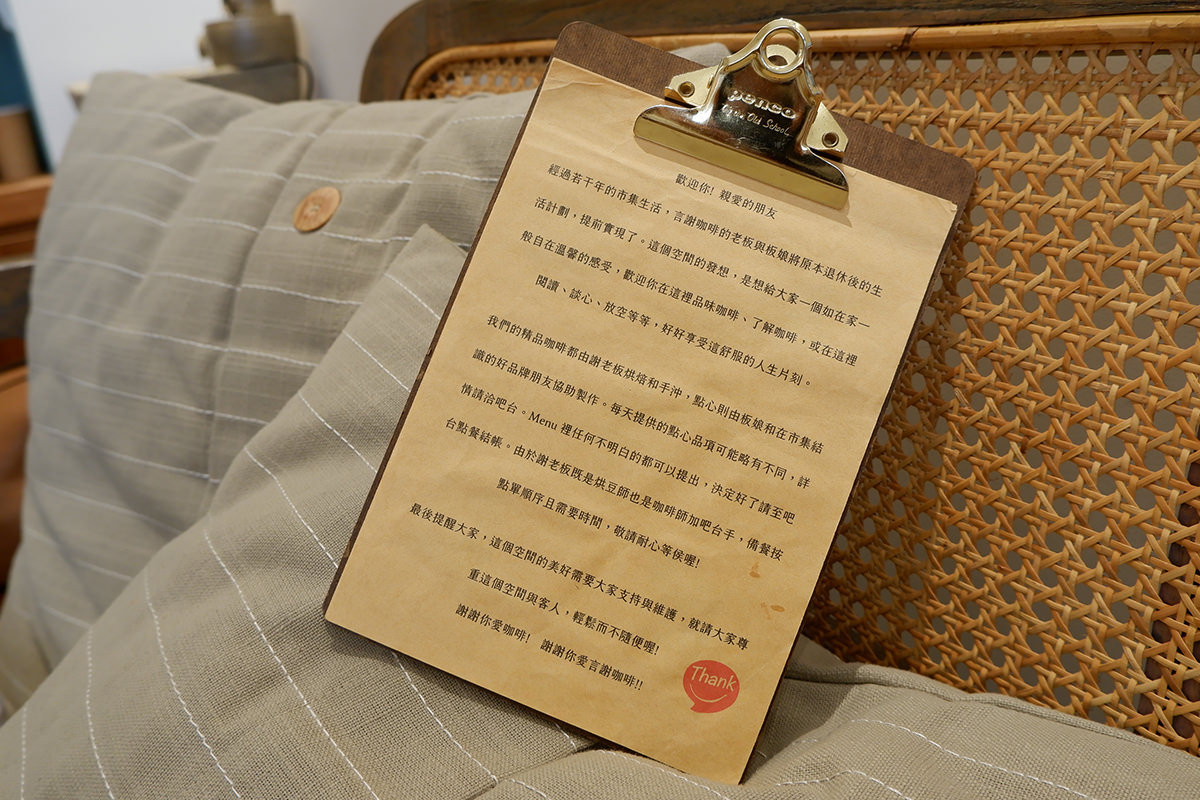 penco
Old School
歡迎你! 親愛的朋友
經過若干年的市集生活，言謝咖啡的老板與板娘將原本退休後的生
活計劃，提前實現了。這個空間的發想，是想給大家一個如在家一
般自在溫馨的感受，歡迎你在這裡品味咖啡、了解咖啡，或在這裡
閱讀、談心、放空等等，好好享受這舒服的人生片刻。
我們的精品咖啡都由謝老板烘焙和手沖，點心則由板娘和在市集結
識的好品牌朋友協助製作。每天提供的點心品項可能略有不同，詳
情請洽吧台。Menu 裡任何不明白的都可以提出，決定好了請至吧
台點餐結帳。由於謝老板既是烘豆師也是咖啡師加吧台手，備餐按
點單順序且需要時間，敬請耐心等侯喔!
最後提醒大家，這個空間的美好需要大家支持與維護，就請大家尊
重這個空間與客人，輕鬆而不隨便喔!
謝謝你愛咖啡! 謝謝你愛言謝咖啡!!
Thank